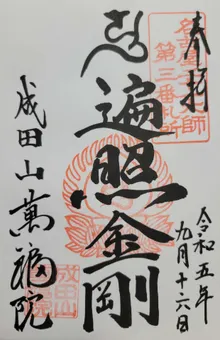 奉拝
名古屋大師
第三番札所
遍照金剛
成田山萬福院
令和五年
九月十六日
成田山